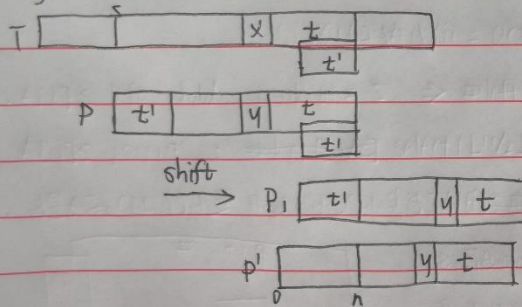 s
T x t
t'
P t' y t
t'
shift
P₁ t' y t
P' y t
0 n